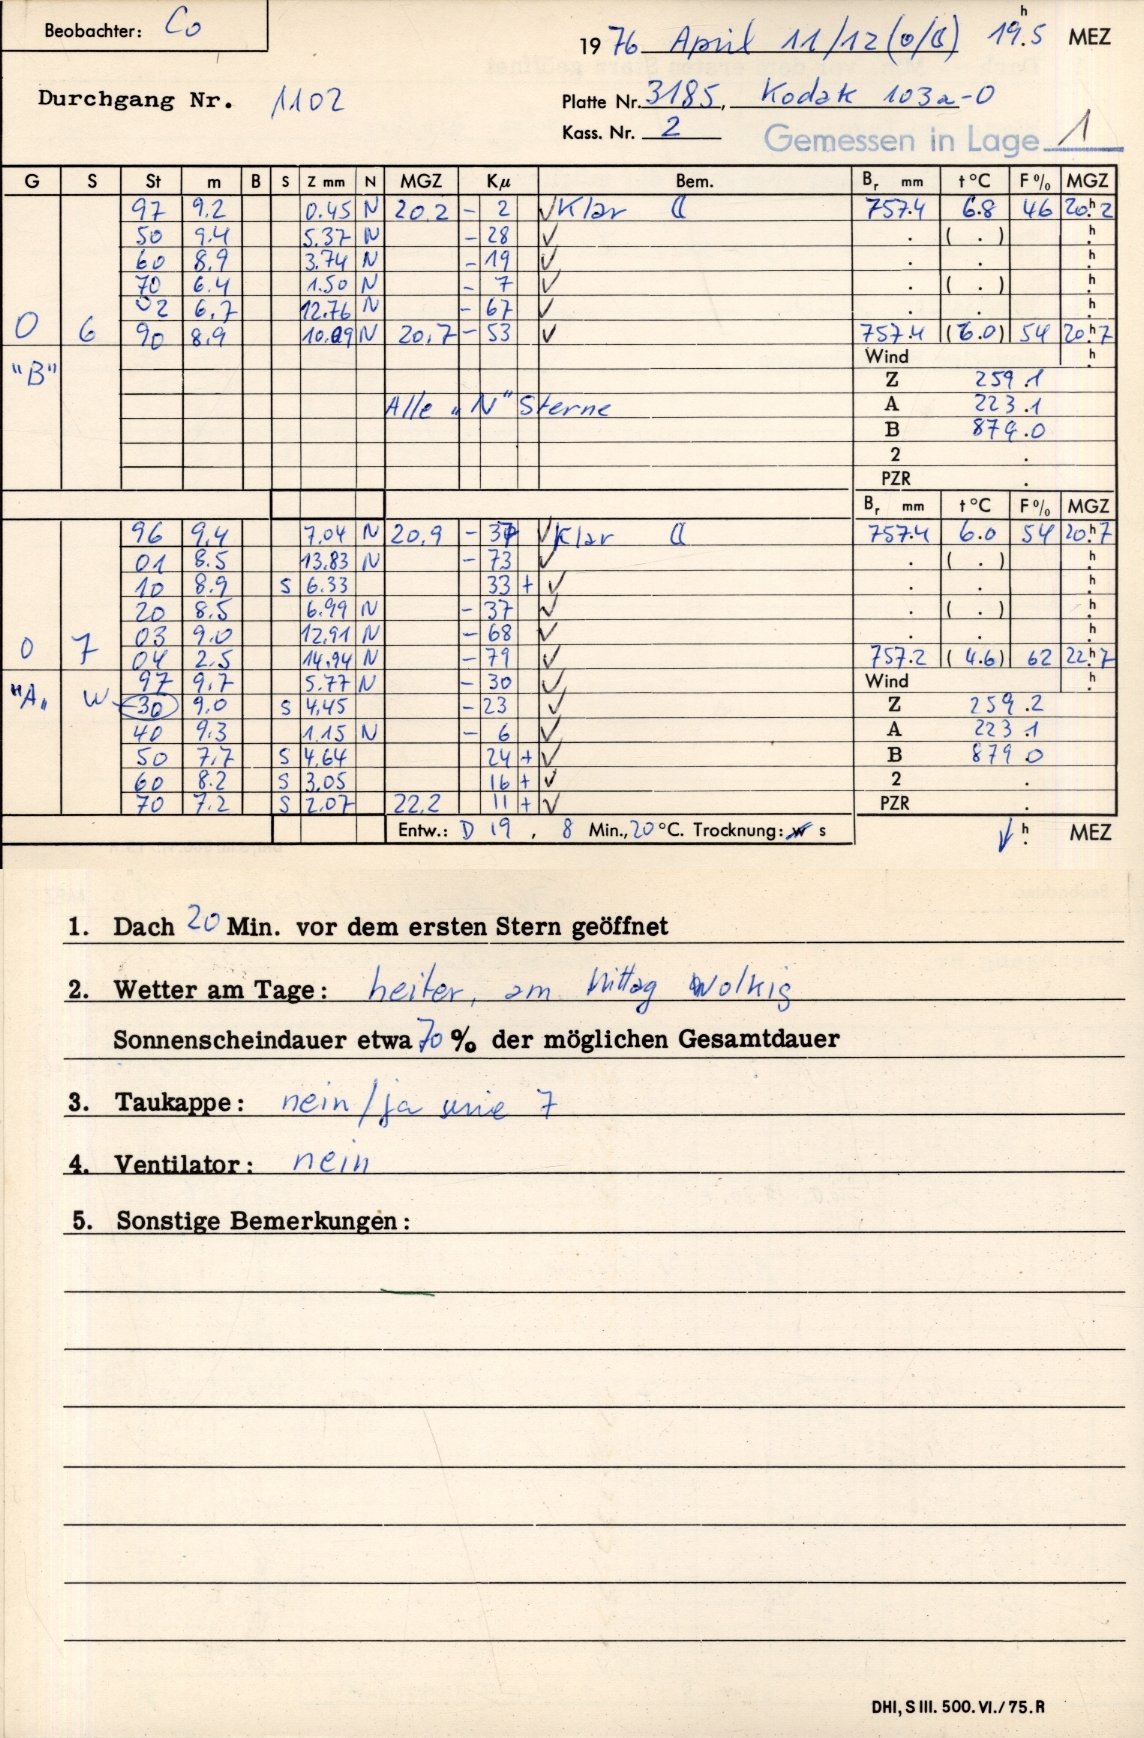 Beobachter: Co
1976 April 11/12 (☉/☾) 19.ʰ5 MEZ
Durchgang Nr. 1102
Platte Nr. 3185, Kodak 103a-O
Kass. Nr. 2 Gemessen in Lage 1
G S St m B S Z mm N MGZ Kµ Bem. Bᵣ mm t °C F % MGZ
97 9.2 0.45 N 20.2 - 2 ✓ Klar ☾ 757.4 6.8 46 20.ʰ2
50 9.4 5.37 N - 28 ✓ . ( . ) ʰ.
60 8.9 3.74 N - 19 ✓ . . ʰ.
70 6.4 1.50 N - 7 ✓ . ( . ) ʰ.
02 6.7 12.76 N - 67 ✓ . . ʰ.
0 6 90 8.9 10.09 N 20.7 - 53 ✓ 757.4 (6.0) 54 20.ʰ7
"B" Wind ʰ.
Z 259.1
Alle „N" Sterne A 223.1
B 879.0
2 .
PZR .
Bᵣ mm t °C F % MGZ
96 9.4 7.04 N 20.9 - 37 ✓ Klar ☾ 757.4 6.0 54 20.ʰ7
01 8.5 13.83 N - 73 ✓ . ( . ) ʰ.
10 8.9 S 6.33 33 + ✓ . . ʰ.
20 8.5 6.99 N - 37 ✓ . ( . ) ʰ.
03 9.0 12.91 N - 68 ✓ . . ʰ.
0 7 04 2.5 14.94 N - 79 ✓ 757.2 (4.6) 62 22.ʰ7
"A„ 97 9.7 5.77 N - 30 ✓ Wind ʰ.
W 30 9.0 S 4.45 - 23 ✓ Z 259.2
40 9.3 1.15 N - 6 ✓ A 223.1
50 7.7 S 4.64 24 + ✓ B 879 0
60 8.2 S 3.05 16 + ✓ 2 .
70 7.2 S 2.07 22.2 11 + ✓ PZR .
Entw.: D 19, 8 Min., 20 °C. Trocknung: w s ʰ. MEZ
1. Dach 20 Min. vor dem ersten Stern geöffnet
2. Wetter am Tage: heiter, am Mittag wolkig
Sonnenscheindauer etwa 70 % der möglichen Gesamtdauer
3. Taukappe: nein / ja
4. Ventilator: nein
5. Sonstige Bemerkungen:
DHI, S III. 500. VI./75. R